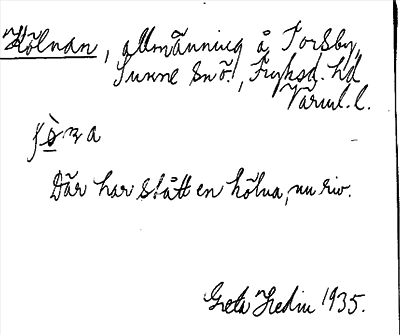 Kölnan, allmänning å Torsby,
Sunne snö., Fryksd. hd
Värml. l.
Där har stått en kölna, nu riv.
Greta Hedin 1935.